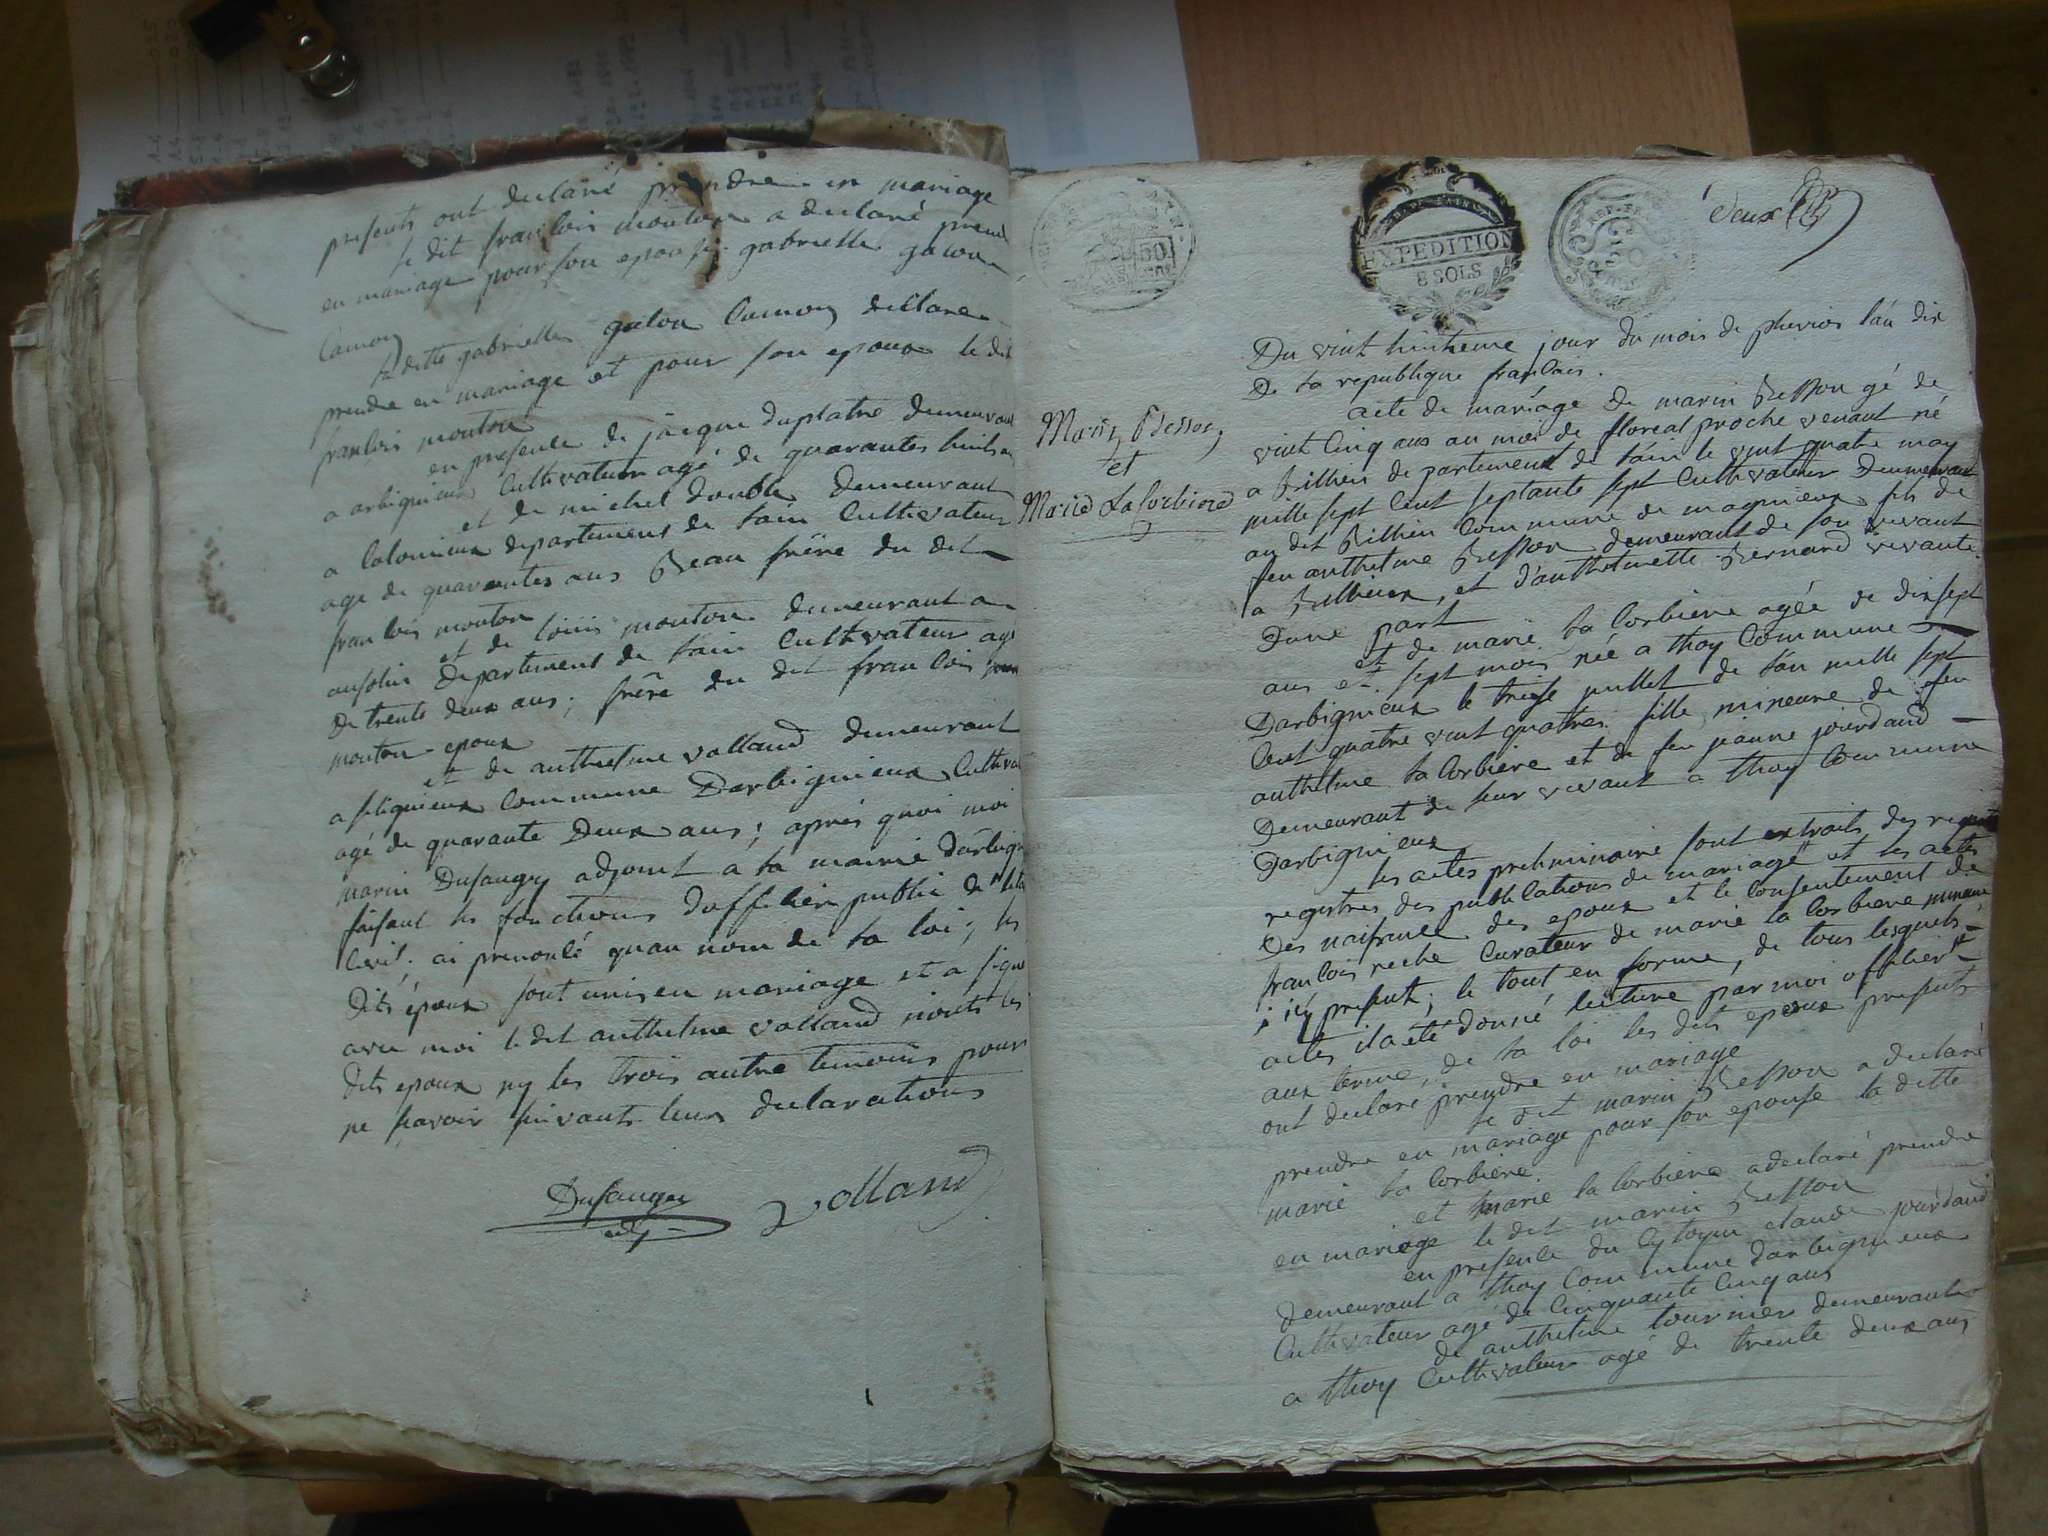 presents ont declaré prendre en mariage
le dit franlois mouton a declaré prend
en mariage pour son epouse gabrielle galon
Camoz
la ditte gabrielle galon Camoz declare
prendre en mariage et pour son epoux le dit
franlois mouton
en presenle de jacque duplatre demeurant
a arbignieux Cultivateur agé de quarantes huit an
et de michel double demeurant
a Colomieux departement de lain Cultivateur
age de quarantes ans Beau frère du dit
franlois mouton
et de louis mouton demeurant a
departement de lain Cultivateur agé
de trente deux ans; frère du dit franlois
mouton epoux
et de anthelme volland demeurant
a peignieux Commune Darbignieux Cultiva
agé de quarante Deux ans; après quoi moi
marin Dusaugey adjoint a la mairie Darbign
faisant les fonctions dofficier public de leta
Civil; ai prenonlé quau nom de la loi; les
Dits épaux sont unis en mariage et a signé
avec moi le dit anthelme volland nonts les
dits epoux ny les trois autre temoins pour
ne savoir suivants leurs declarations
Dusaugey
adj
Volland
REP. FRA.
50
EXPEDITION
8 SOLS
deux
Du vint huitieme jour du mois de pluvios l'an dix
De la republique franlais.
acte de mariage de marin Besson gé de
vint Cinq ans au mois de floreal proche venant né
a Billieu de partement de lain le vint quatre may
mille sept Cent septante sept Cultivateur Demeurant
au dit Billieu Commune de magnieux fils de
feu anthelme Besson demeurant de son vivant
a Billieux, et d'anthelmette Bernard vivante
Dune part
Marin Besson
et
Marie La Corbiere
et de marie la Corbiere agée de dix sept
ans et sept mois née a thoy Commune
Darbignieux le treise juillet de l'an mille sept
Cent quatre vint quatre fille mineure de feu
anthelme la Corbiere et de feu jeanne jourdand
Demeurant de leur vivant a thoy Commune
Darbignieux
les actes preliminaire sont extraits des
registres des publications de mariage et les actes
des naisance des epoux et le consentement de
franlois reche Curateur de marie la Corbiere mineure
icy present; le tout en forme, de tous lesquels
actes il a eté donné lecture par moi officier
aux terme, de la loi les dits epoux presents
ont declaré prendre en mariage
le dit marin Besson a declaré
prendre en mariage pour son epouse la ditte
marie la Corbiere.
et marie la Corbiere a declaré prendre
en mariage le dit marin Besson
en presenle du Cytoyen claude jourdand
Demeurant a thoy Commune darbignieux
Cultivateur agé de Cinquante Cinq ans
de anthelme tournier demeurant
a thoy Cultivateur agé de trente deux ans